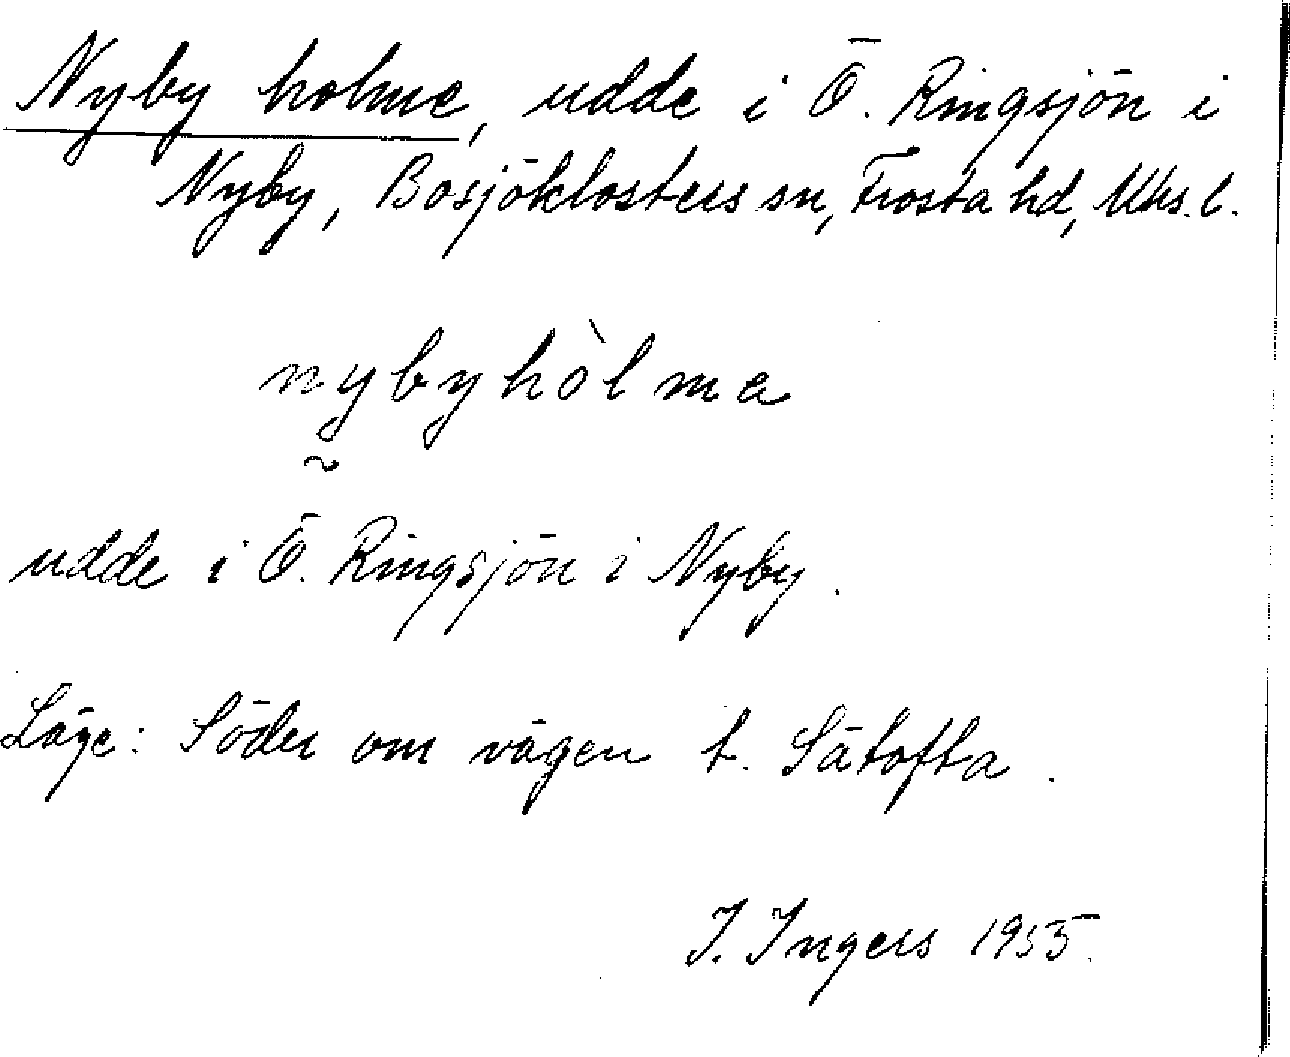 Nyby holme, udde i Ö. Ringsjön i
Nyby, Bosjöklosters sn, Frosta hd, Mhs. l.
nybyhòlma
udde i Ö. Ringsjön i Nyby.
Läge: Söder om vägen t. Sätofta.
I. Ingers 1955.